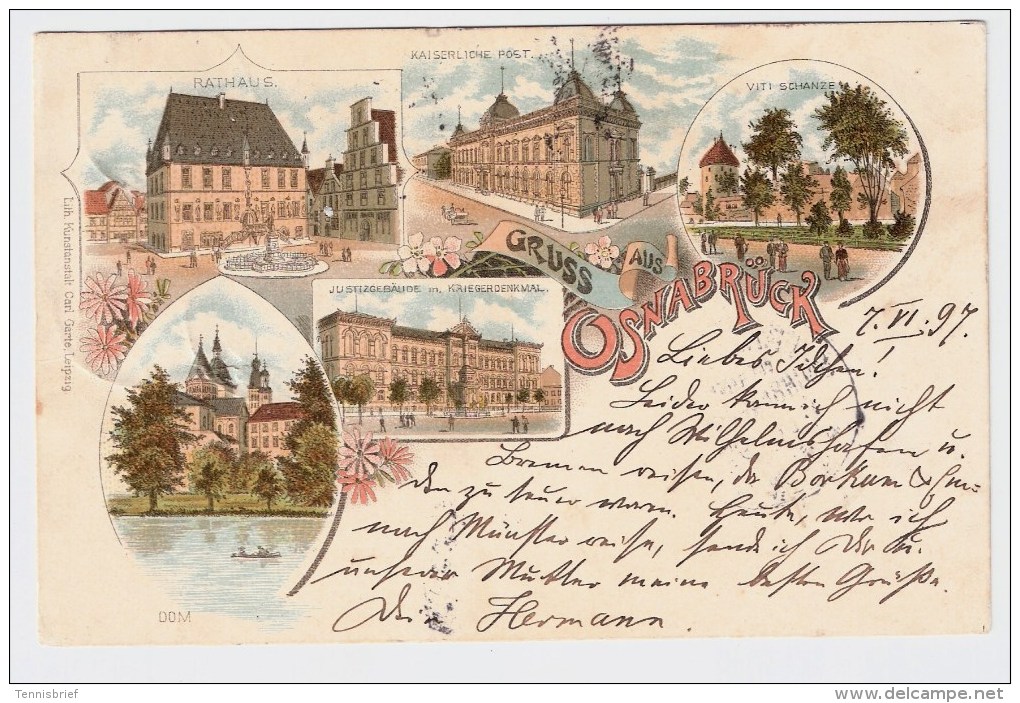 RATHAUS.
KAISERLICHE POST.
VITI SCHANZE
GRUSS AUS
OSNABRÜCK
JUSTIZGEBÄUDE m. KRIEGERDENKMAL.
DOM
Lith. Kunstanstalt Carl Garte, Leipzig.
7. VI. 97.
Liebes !
Leider kann ich nicht
nach Wilhelmshafen u.
Bremen reisen, da Borkum &
den zu teuer waren. Heute, wo ich
nach Münster reise, sende ich Dir u.
unserer Mutter meine besten Grüße
Dein Hermann.
Tennisbrief
delcampe.net